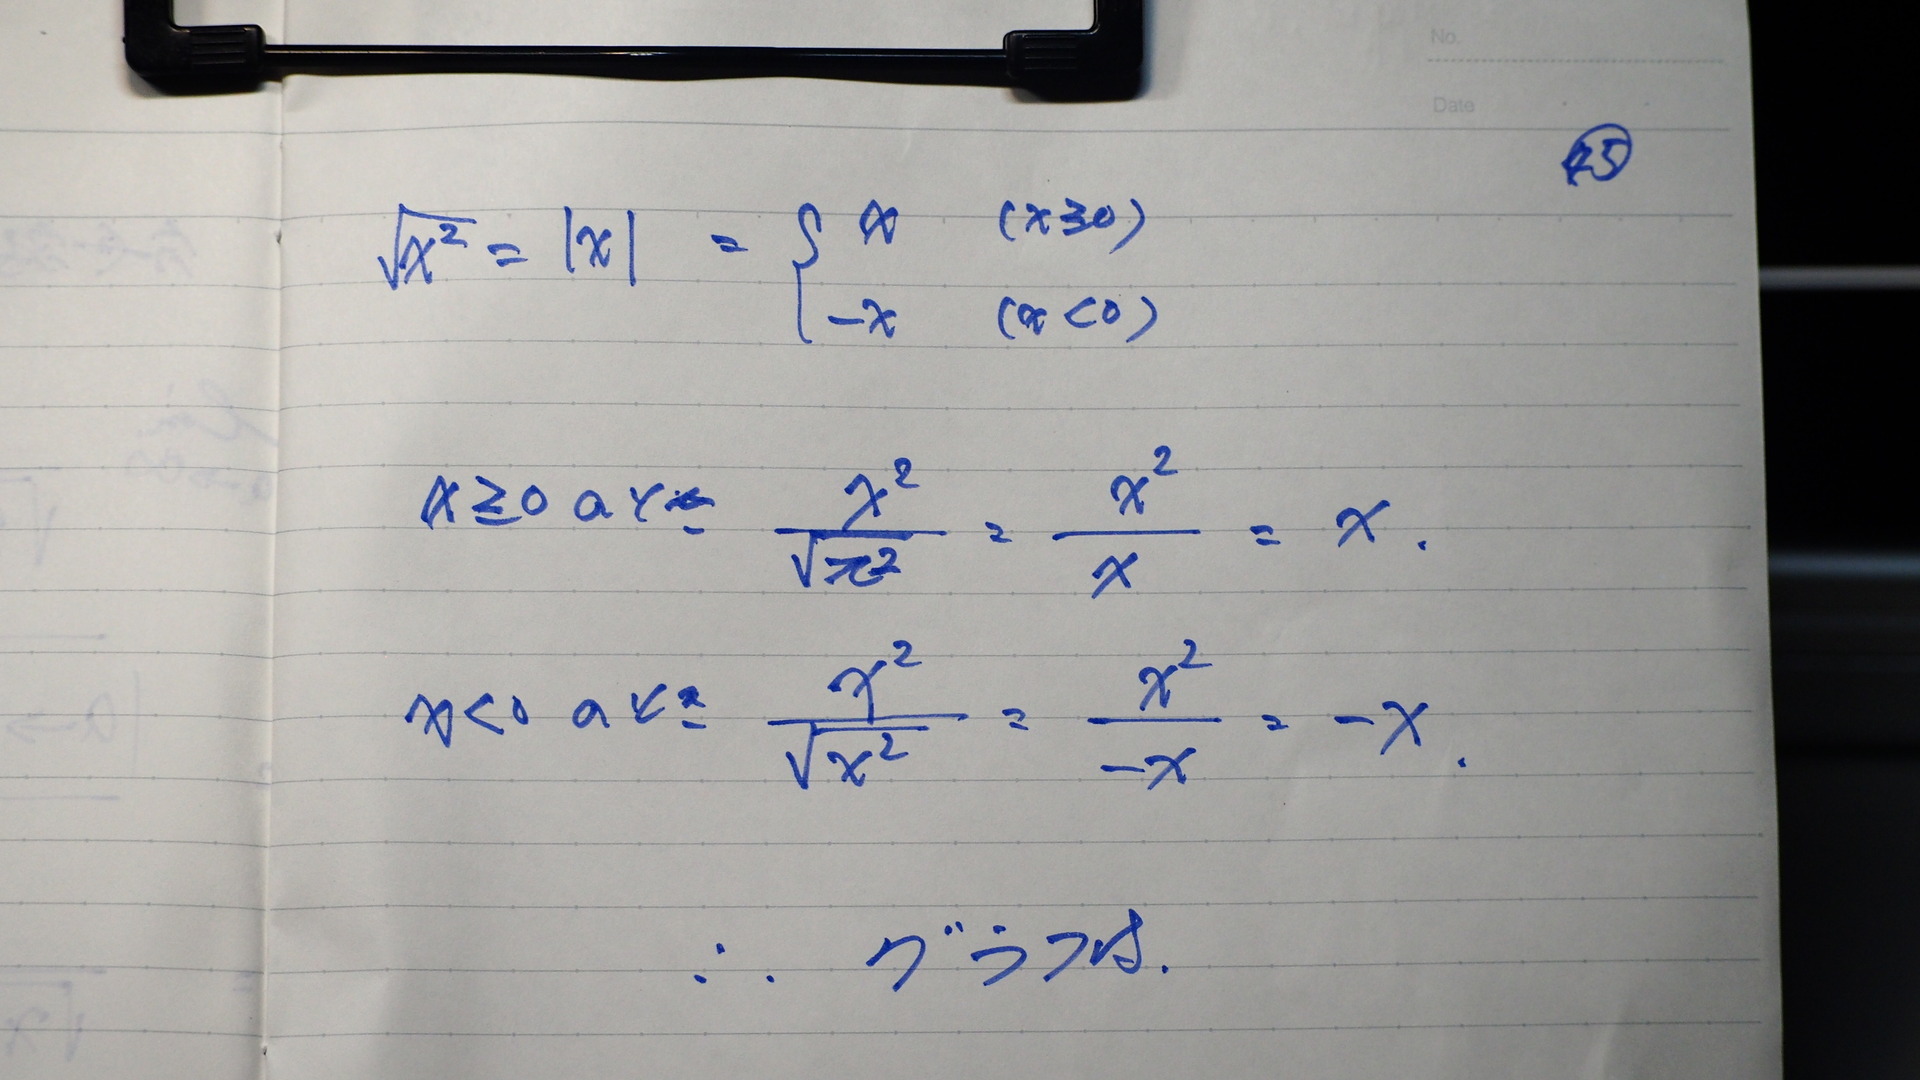 No.
Date
√x² = |x| = { x (x≧0)
-x (x<0)
x≧0 のとき x²/√x² = x²/x = x.
x<0 のとき x²/√x² = x²/-x = -x.
∴ グラフは.